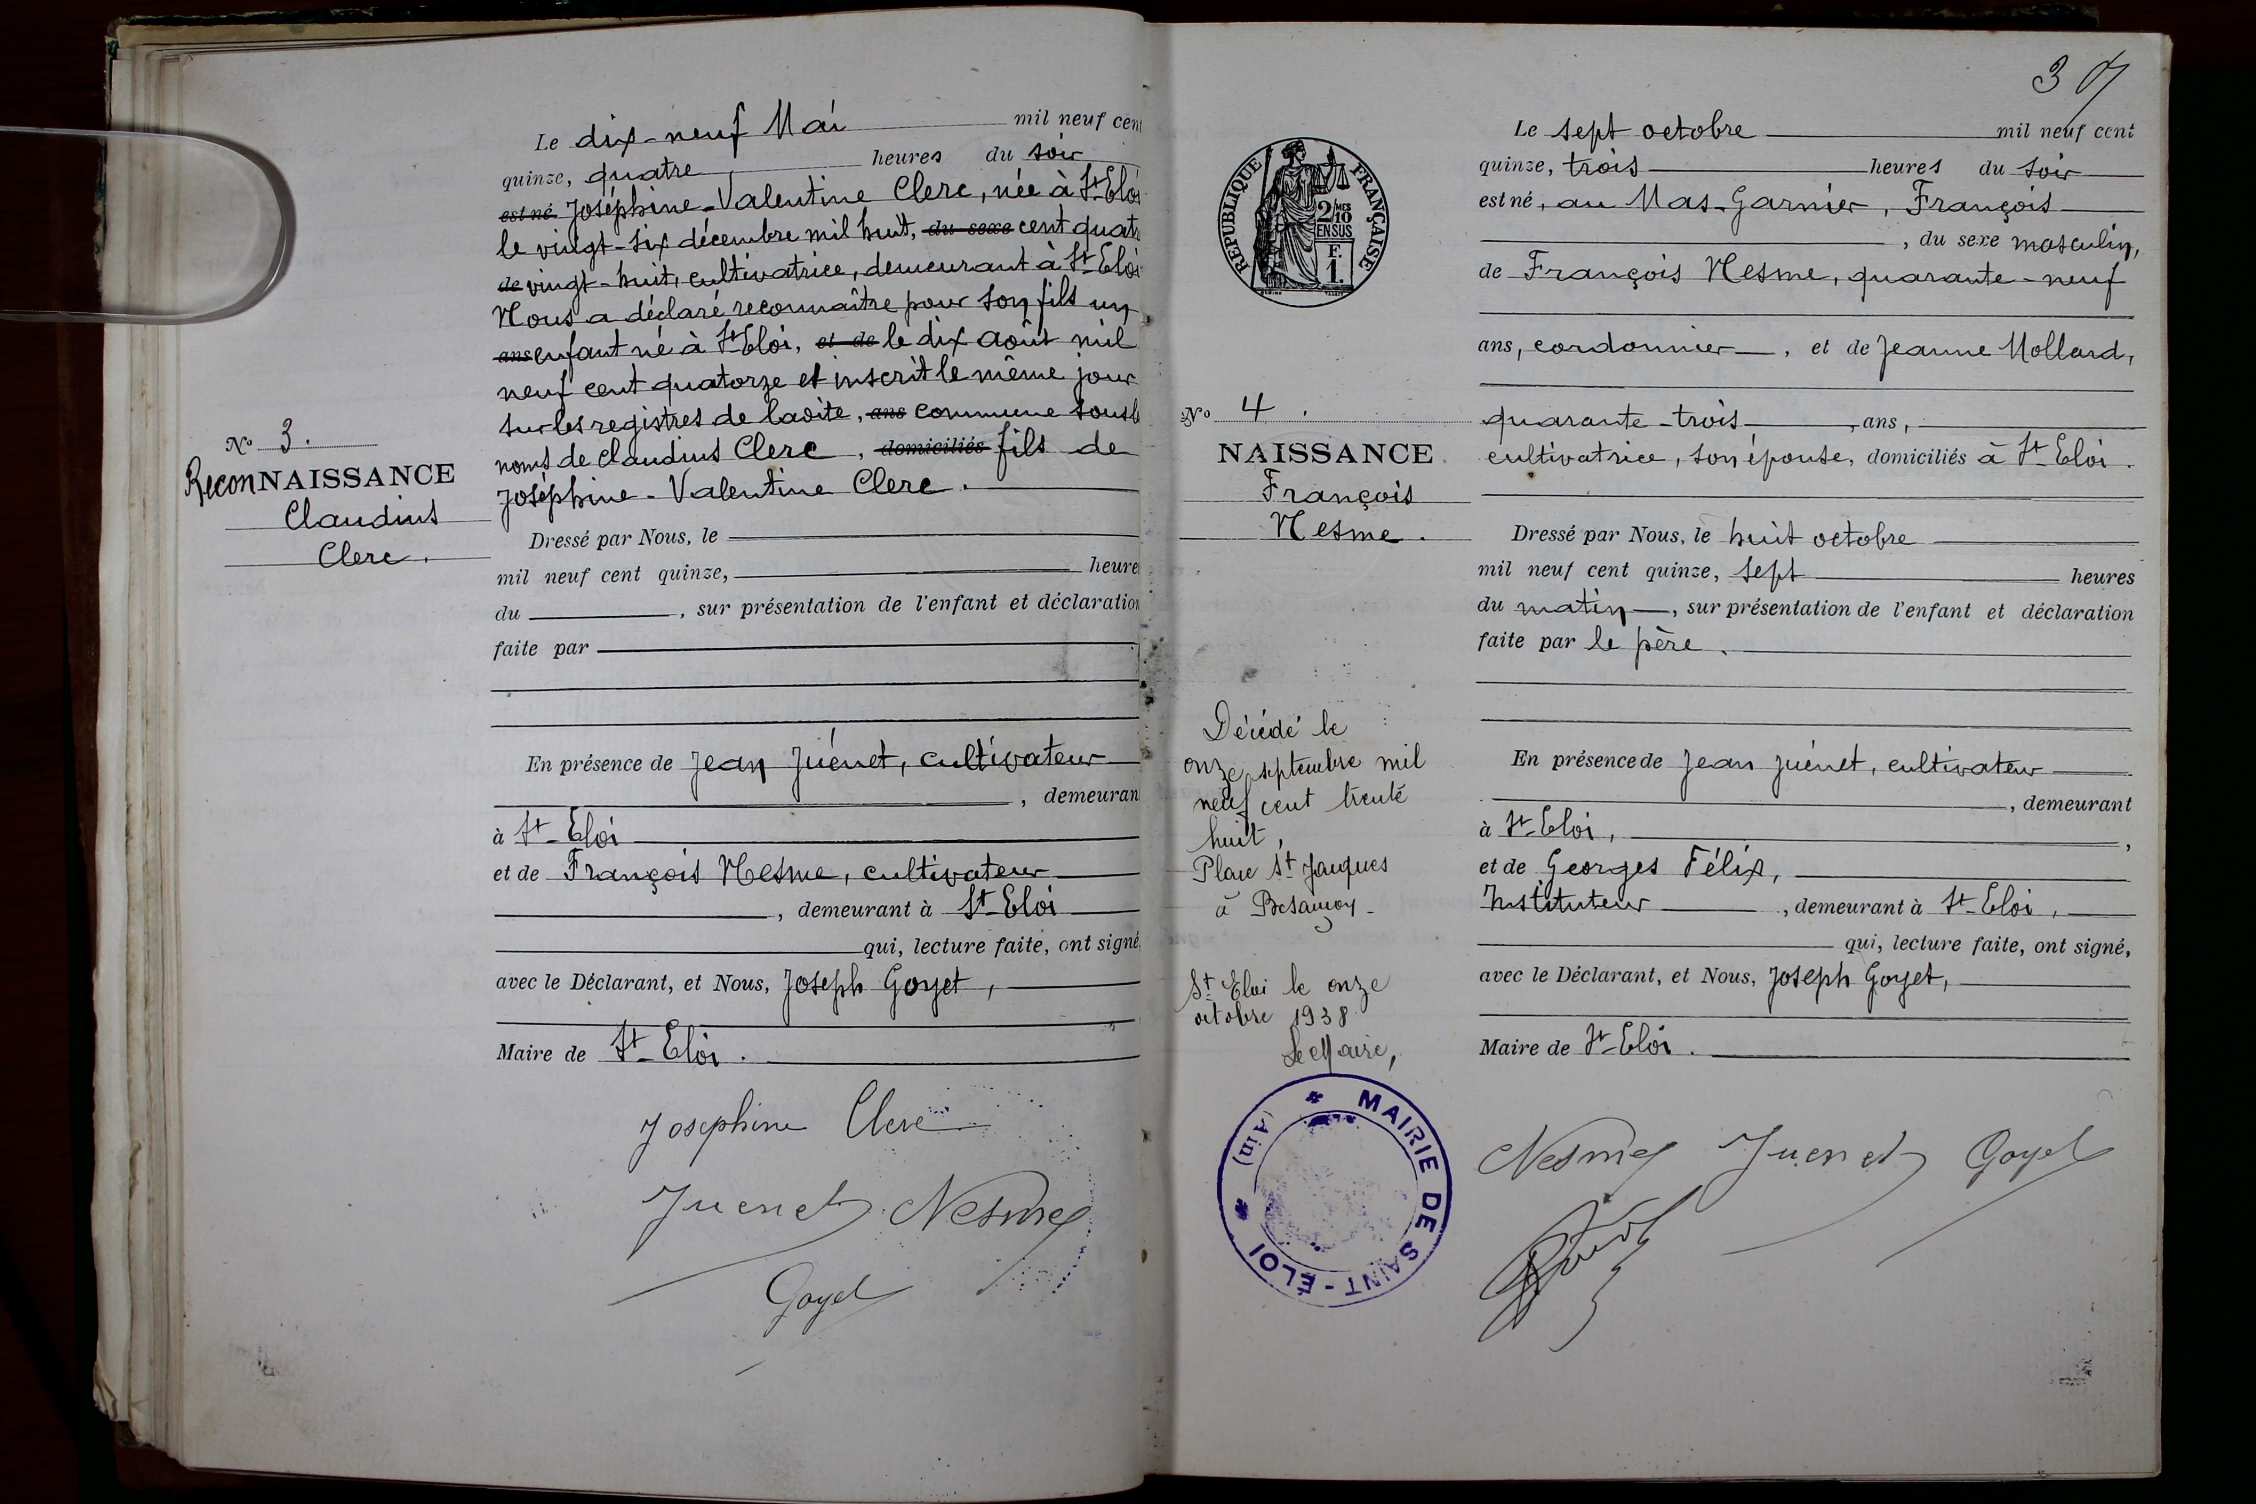 Le dix-neuf Mai mil neuf cent
quinze, quatre heures du soir
est né Joséphine-Valentine Clerc, née à St-Eloi
le vingt-six décembre mil huit, du sexe cent quatre
de vingt-huit, cultivatrice, demeurant à St-Eloi
Nous a déclaré reconnaître pour son fils un
ans enfant né à St-Eloi, et de le dix août mil
neuf cent quatorze et inscrit le même jour
sur les registres de ladite, ans commune sous le
noms de Claudius Clerc, domiciliés fils de
Joséphine-Valentine Clerc.
No 3.
ReconNAISSANCE
Claudius
Clerc.
Dressé par Nous, le
mil neuf cent quinze, heure
du , sur présentation de l'enfant et déclaration
faite par
En présence de Jean Juénet, cultivateur
, demeuran
à St-Eloi
et de François Nesme, cultivateur
, demeurant à St-Eloi
qui, lecture faite, ont signé
avec le Déclarant, et Nous, Joseph Goyet,
Maire de St-Eloi.
Josephine Clerc
Juenet Nesme
Goyet
37
RÉPUBLIQUE FRANÇAISE
2/10 MES
EN SUS
F.
1.
Le sept octobre mil neuf cent
quinze, trois heures du soir
est né, au Mas-Garnier, François
, du sexe masculin,
de François Nesme, quarante-neuf
ans, cordonnier, et de Jeanne Mollard,
quarante-trois, ans,
cultivatrice, son épouse, domiciliés à St-Eloi.
No 4.
NAISSANCE
François
Nesme.
Dressé par Nous, le huit octobre
mil neuf cent quinze, sept heures
du matin, sur présentation de l'enfant et déclaration
faite par le père.
Décédé le
onze septembre mil
neuf cent trente
huit,
Place St Jacques
à Besançon
St Eloi le onze
octobre 1938
Le Maire,
MAIRIE DE SAINT-ÉLOI
(Ain)
En présence de Jean Juénet, cultivateur
, demeurant
à St-Eloi,
et de Georges Félix,
Instituteur , demeurant à St-Eloi,
qui, lecture faite, ont signé,
avec le Déclarant, et Nous, Joseph Goyet,
Maire de St-Eloi.
Nesme Juenet Goyet